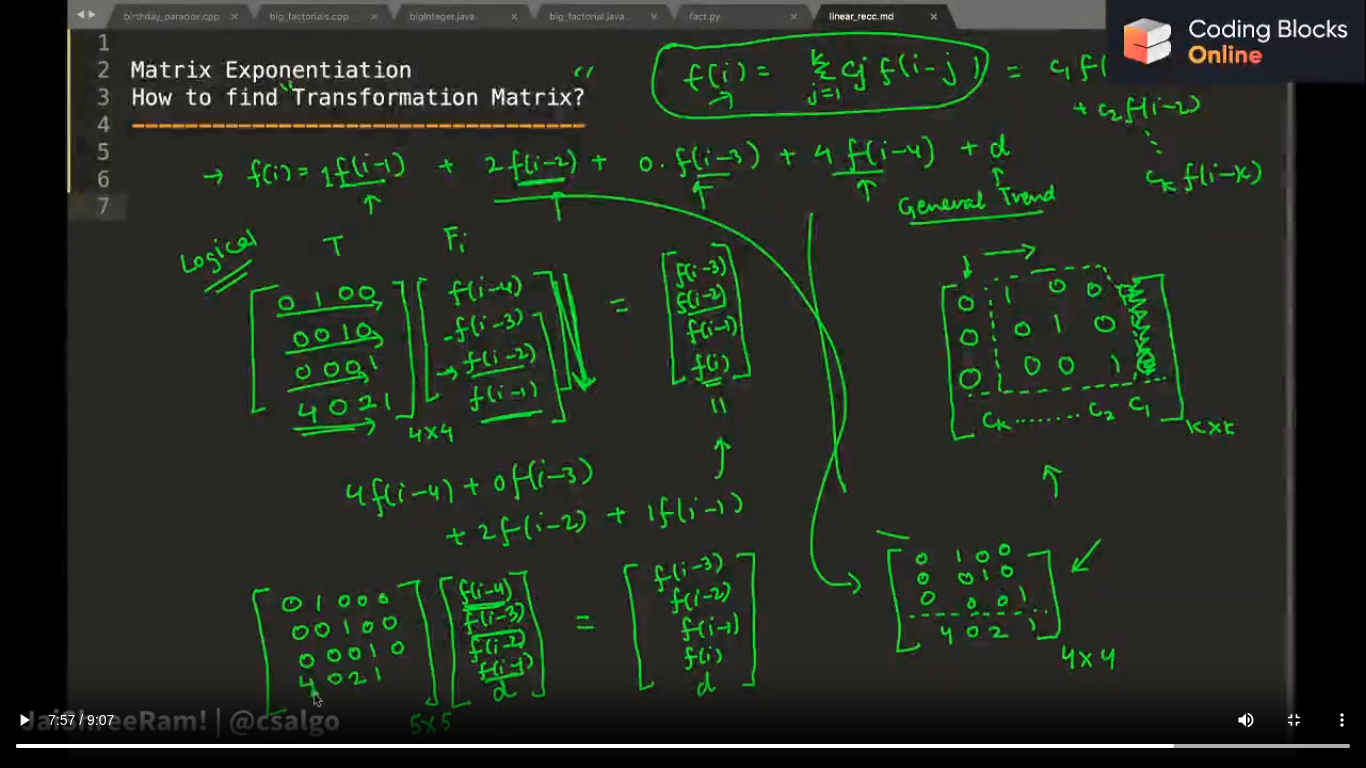 birthday_paradox.cpp × big_factorials.cpp × bigInteger.java × big_factorial.java × fact.py × linear_recc.md ×
Coding Blocks
Online
1
2 Matrix Exponentiation
3 How to find Transformation Matrix?
4 --------------------------------
5
6
7
f(i) = Σ cj f(i-j) = c1 f(
k
j=1
+ c2 f(i-2)
⋮
ck f(i-k)
→ f(i) = 1f(i-1) + 2f(i-2) + 0.f(i-3) + 4f(i-4) + d
General Trend
Logical
T Fi
0 1 0 0
0 0 1 0
0 0 0 1
4 0 2 1
4×4
f(i-4)
f(i-3)
→ f(i-2)
f(i-1)
=
f(i-3)
f(i-2)
f(i-1)
f(i)
0 1 0 0
0 0 1 0
0 0 0 1
ck ........ c2 c1
k×k
4f(i-4) + 0f(i-3)
+ 2f(i-2) + 1f(i-1)
0 1 0 0
0 0 1 0
0 0 0 1
4 0 2 1
4×4
0 1 0 0 0
0 0 1 0 0
0 0 0 1 0
4 0 2 1
5×5
f(i-4)
f(i-3)
f(i-2)
f(i-1)
d
=
f(i-3)
f(i-2)
f(i-1)
f(i)
d
JaiShreeRam! | @csalgo
7:57 / 9:07